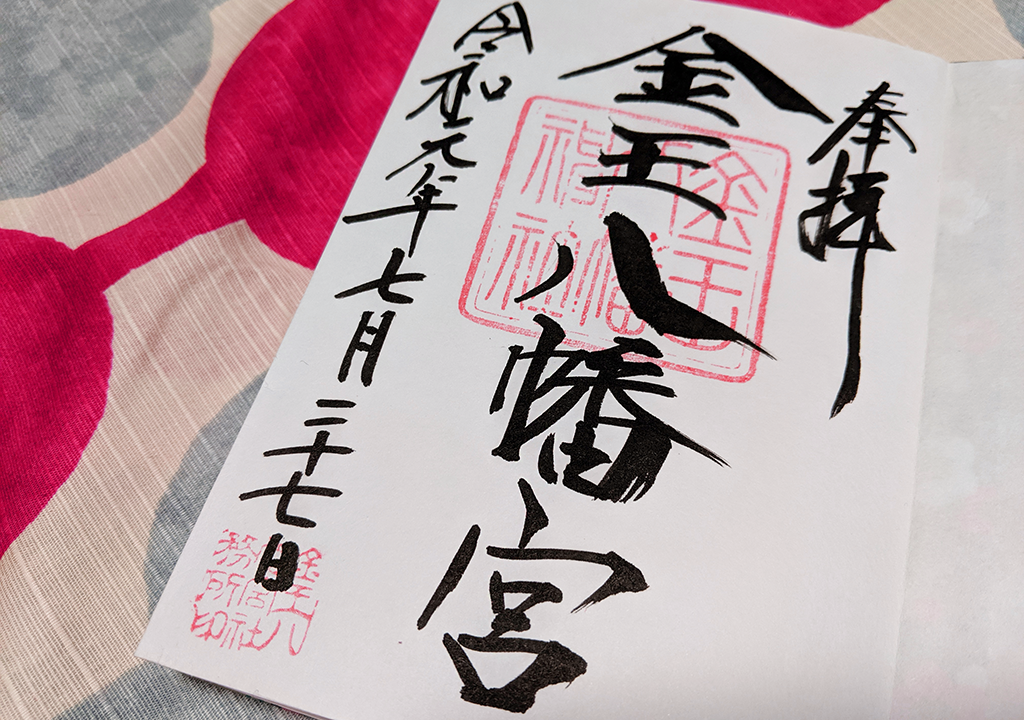 奉拝
金王八幡宮
令和元年七月二十七日
金王八幡
神社
金王八
幡宮社
務所印